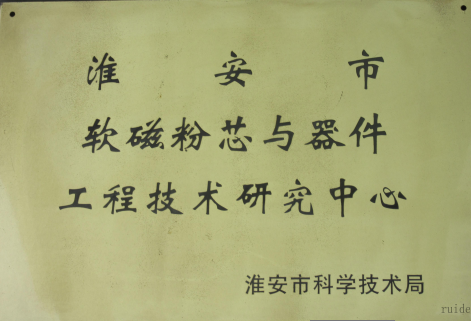 淮安市
软磁粉芯与器件
工程技术研究中心
淮安市科学技术局
ruide